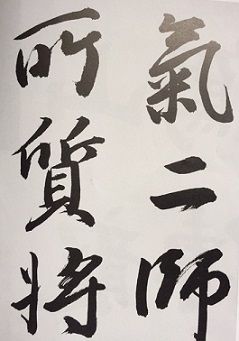 氣二師
所質將